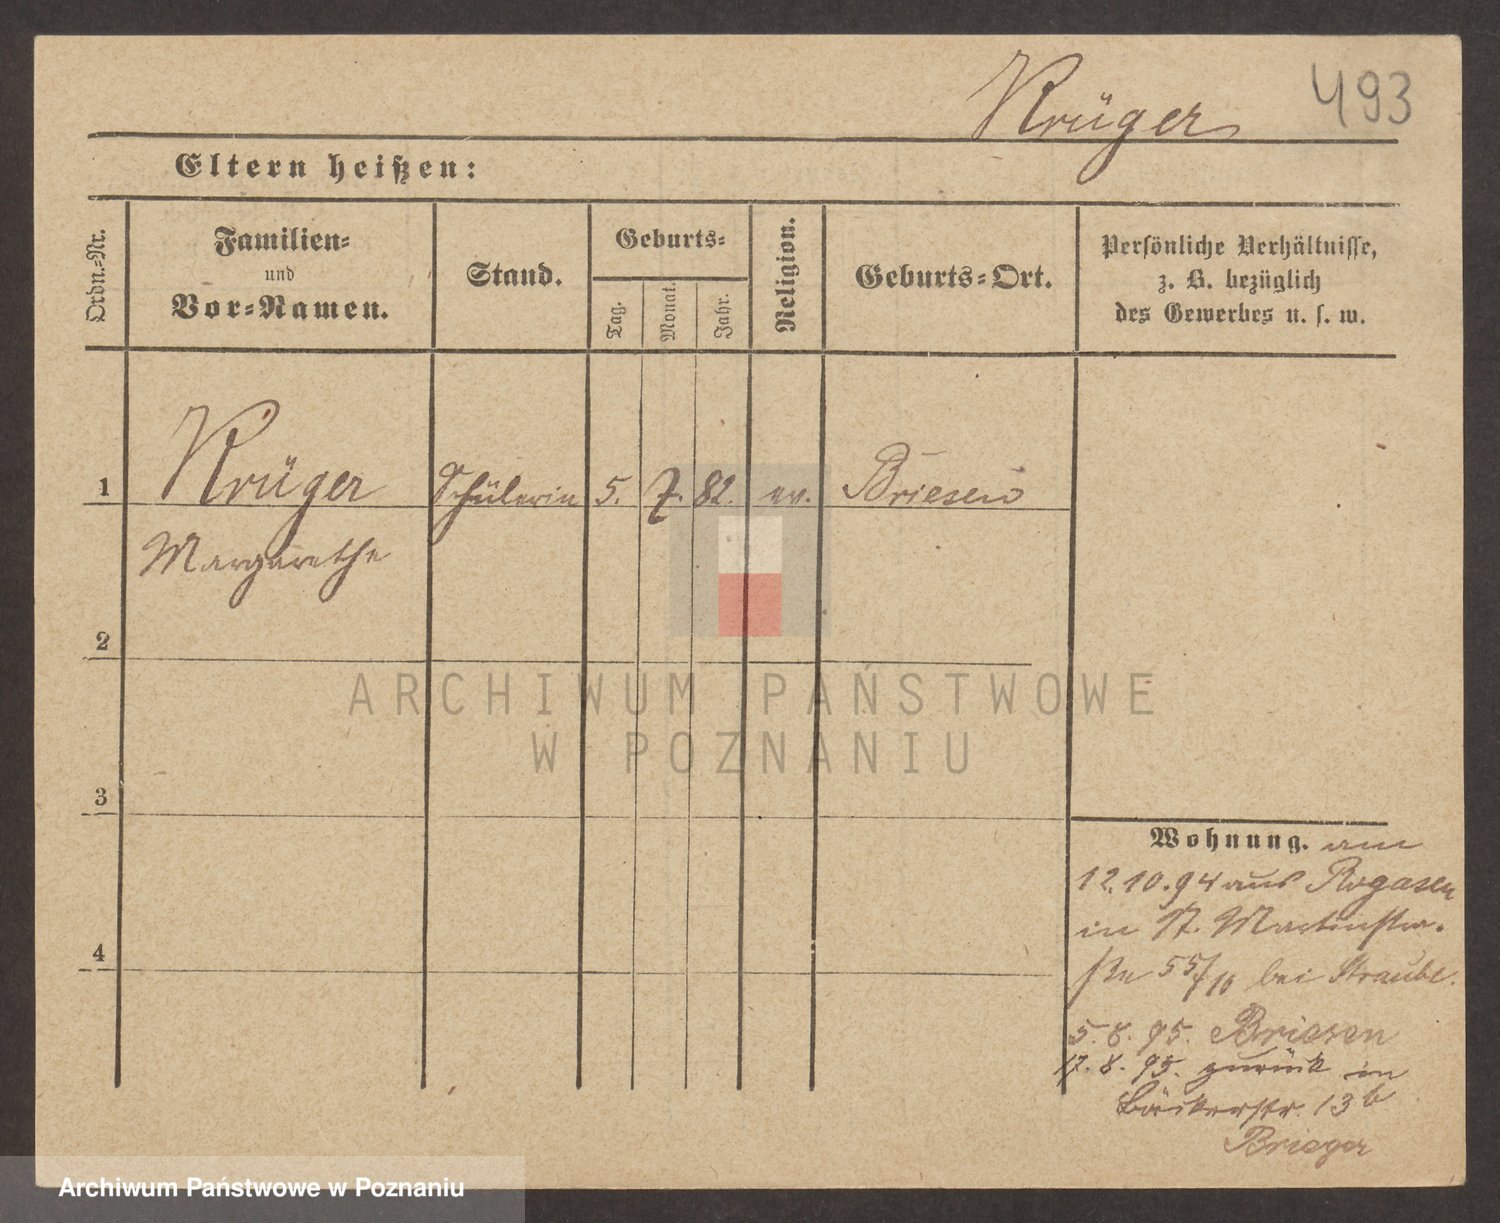 Krüger
493
Eltern heißen:
Ordn.-Nr.
Familien-
und
Vor-Namen.
Stand.
Geburts-
Tag.
Monat.
Jahr.
Religion.
Geburts-Ort.
Persönliche Verhältnisse,
z. B. bezüglich
des Gewerbes u. s. w.
1 Krüger Schülerin 5. 7. 82. ev. Briesen
Margarethe
2
3
4
ARCHIWUM PAŃSTWOWE
W POZNANIU
Wohnung. am
12.10.94 aus Rogasen
in St. Martinstra-
ße 55/10 bei Straube.
5.8.95. Briesen
17.8.95. zurück in
Bäckerstr. 13b
Brieger
Archiwum Państwowe w Poznaniu